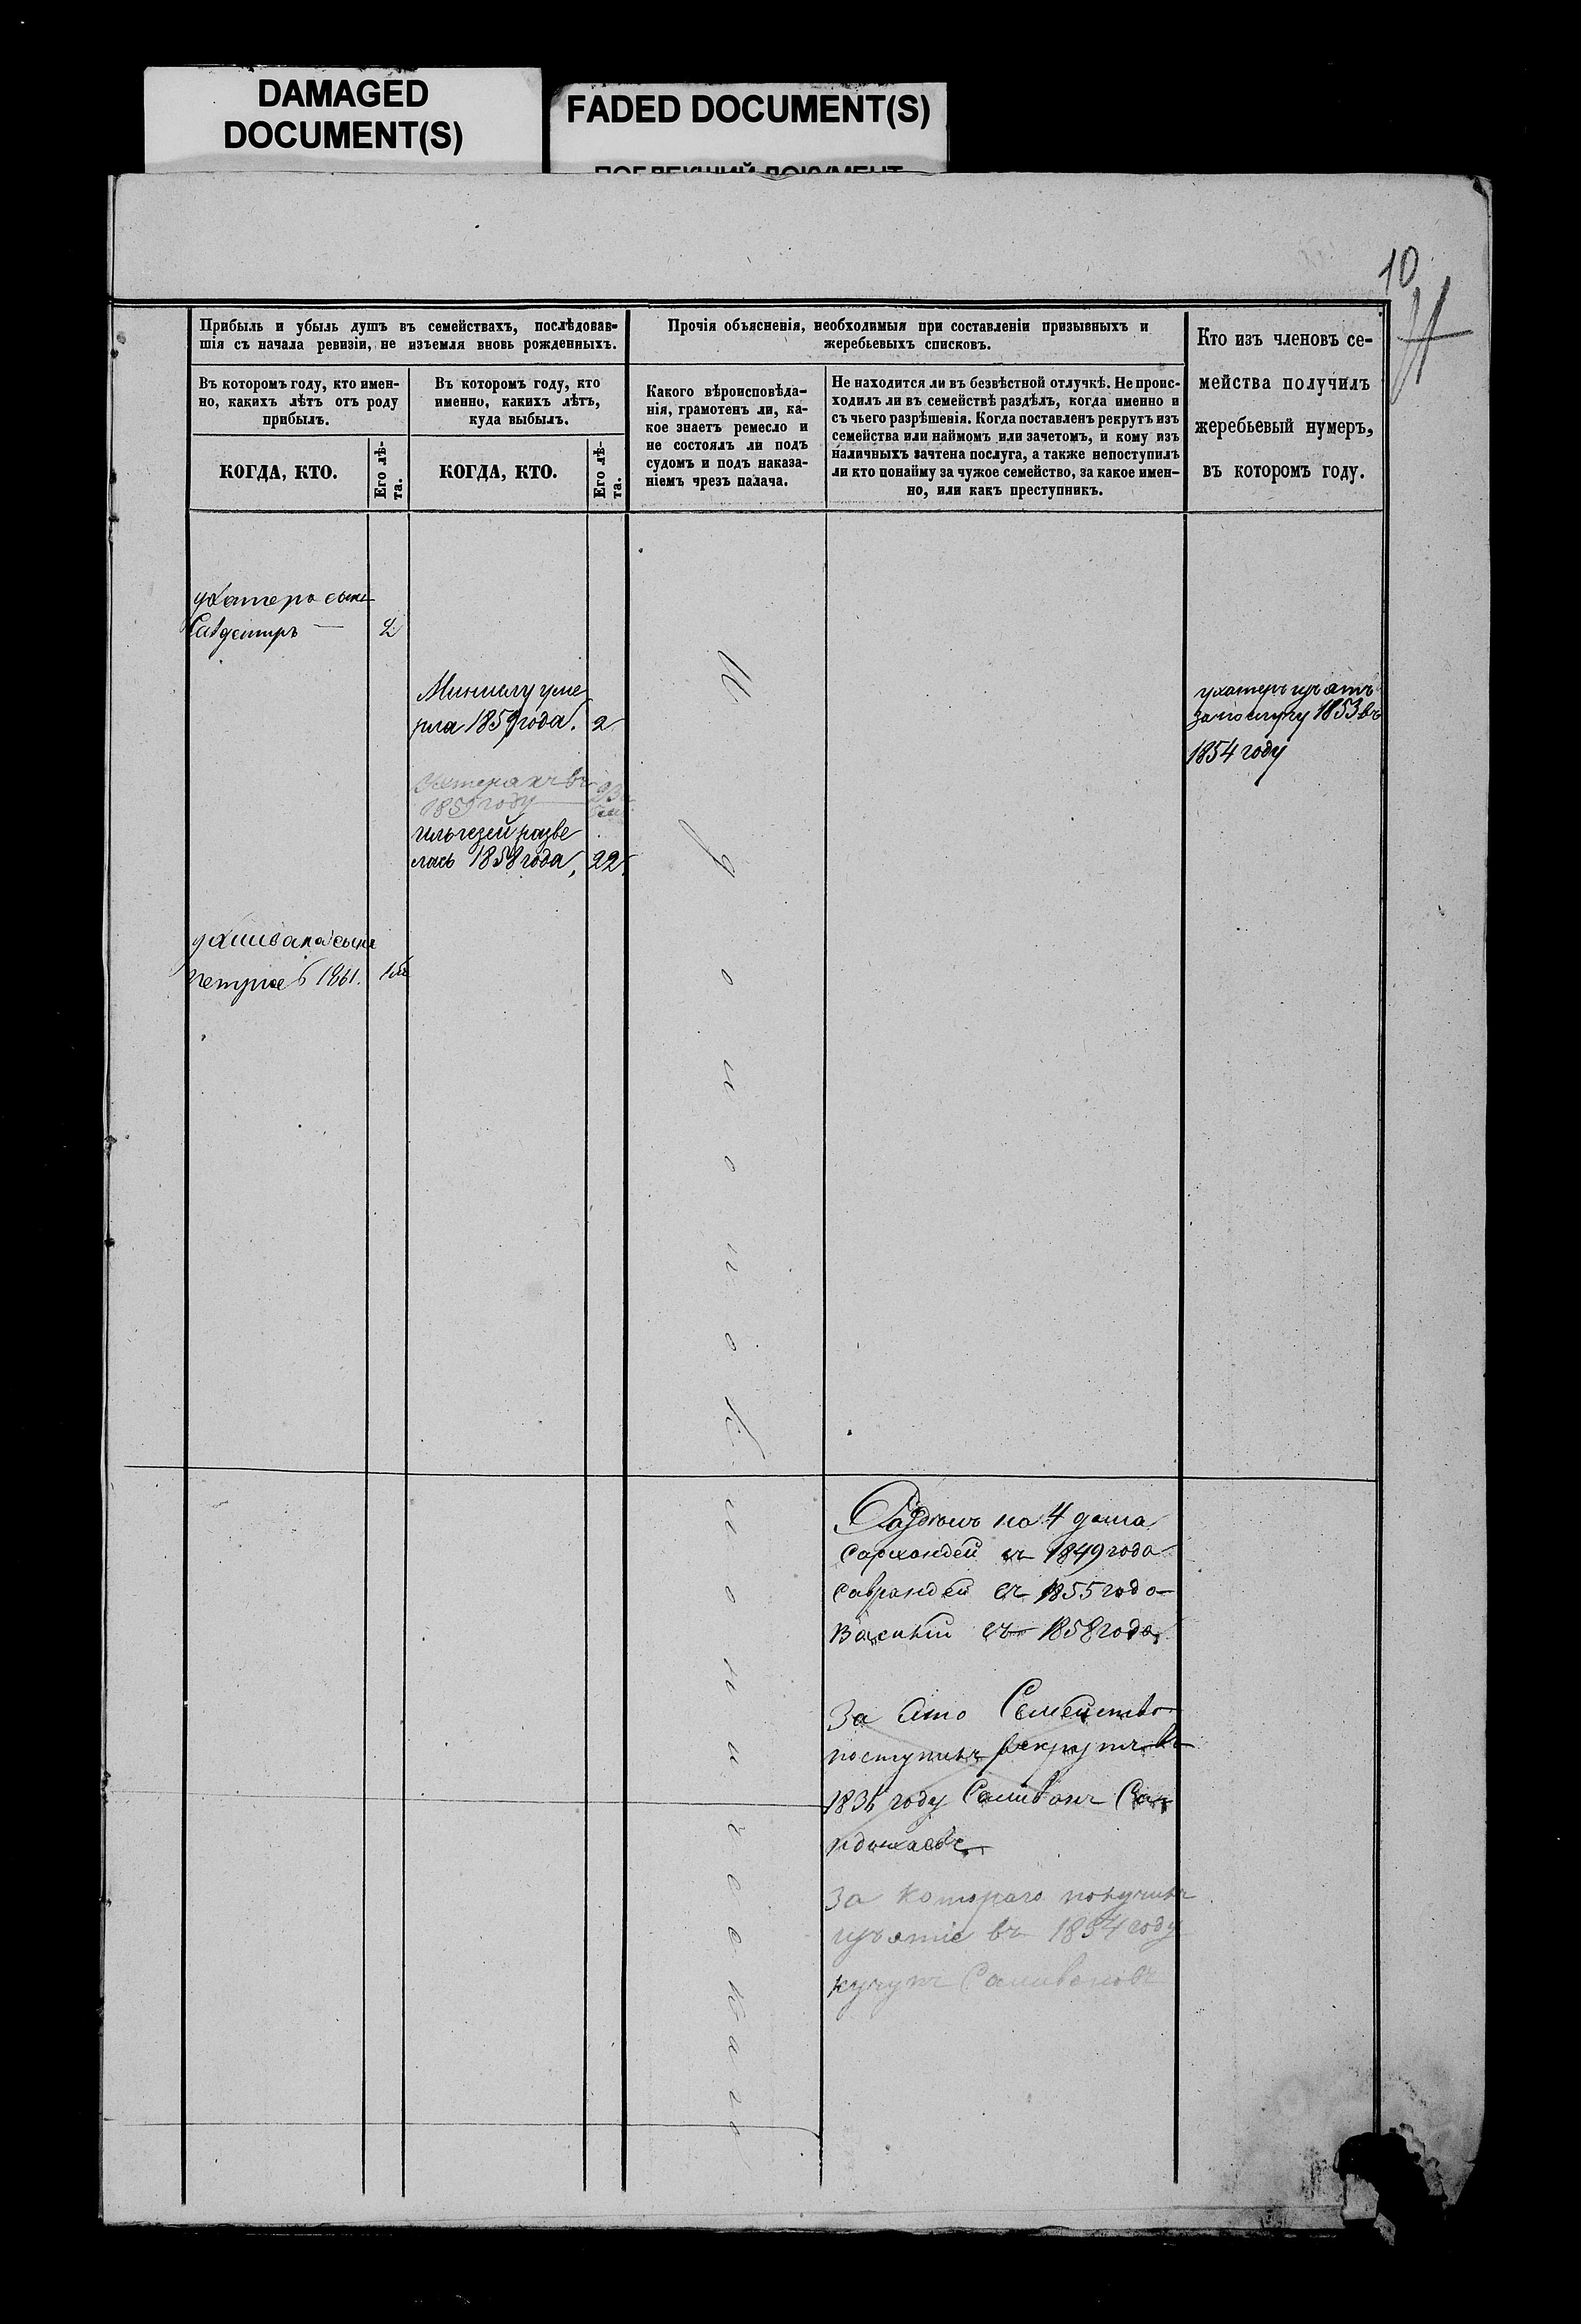 DAMAGED
DOCUMENT(S)
FADED DOCUMENT(S)
ПОБЛЕКШИЙ ДОКУМЕНТ
10
Прибыль и убыль душъ въ семействахъ, послѣдовав-
шія съ начала ревизіи, не изъемля вновь рожденныхъ.
Въ которомъ году, кто имен-
но, какихъ лѣтъ отъ роду
прибылъ.
КОГДА, КТО.
Его лѣ-
та.
Въ которомъ году, кто
именно, какихъ лѣтъ,
куда выбылъ.
КОГДА, КТО.
Его лѣ-
та.
Прочія объясненія, необходимыя при составленіи призывныхъ и
жеребьевыхъ списковъ.
Какого вѣроисповѣда-
нія, грамотенъ ли, ка-
кое знаетъ ремесло и
не состоялъ ли подъ
судомъ и подъ наказа-
ніемъ чрезъ палача.
Не находится ли въ безвѣстной отлучкѣ. Не проис-
ходилъ ли въ семействѣ раздѣлъ, когда именно и
съ чьего разрѣшенія. Когда поставленъ рекрутъ изъ
семейства или наймомъ или зачетомъ, и кому изъ
наличныхъ зачтена послуга, а также непоступилъ
ли кто понайму за чужое семейство, за какое имен-
но, или какъ преступникъ.
Кто изъ членовъ се-
мейства получилъ
жеребьевый нумеръ,
въ которомъ году.
2
уме
рла 1859 года. 2
1859 году
разве
лась 1858 года, 22.
1861.
изъятъ
за послугу 1853 въ
1854 году
Идолопоклоннического
на 4 дома
съ 1849 года
съ 1855 года
Василий съ 1858 года.
За это Семейство
поступилъ рекрутъ въ
году Селиванъ
За котораго получилъ
изъятіе въ 1854 году